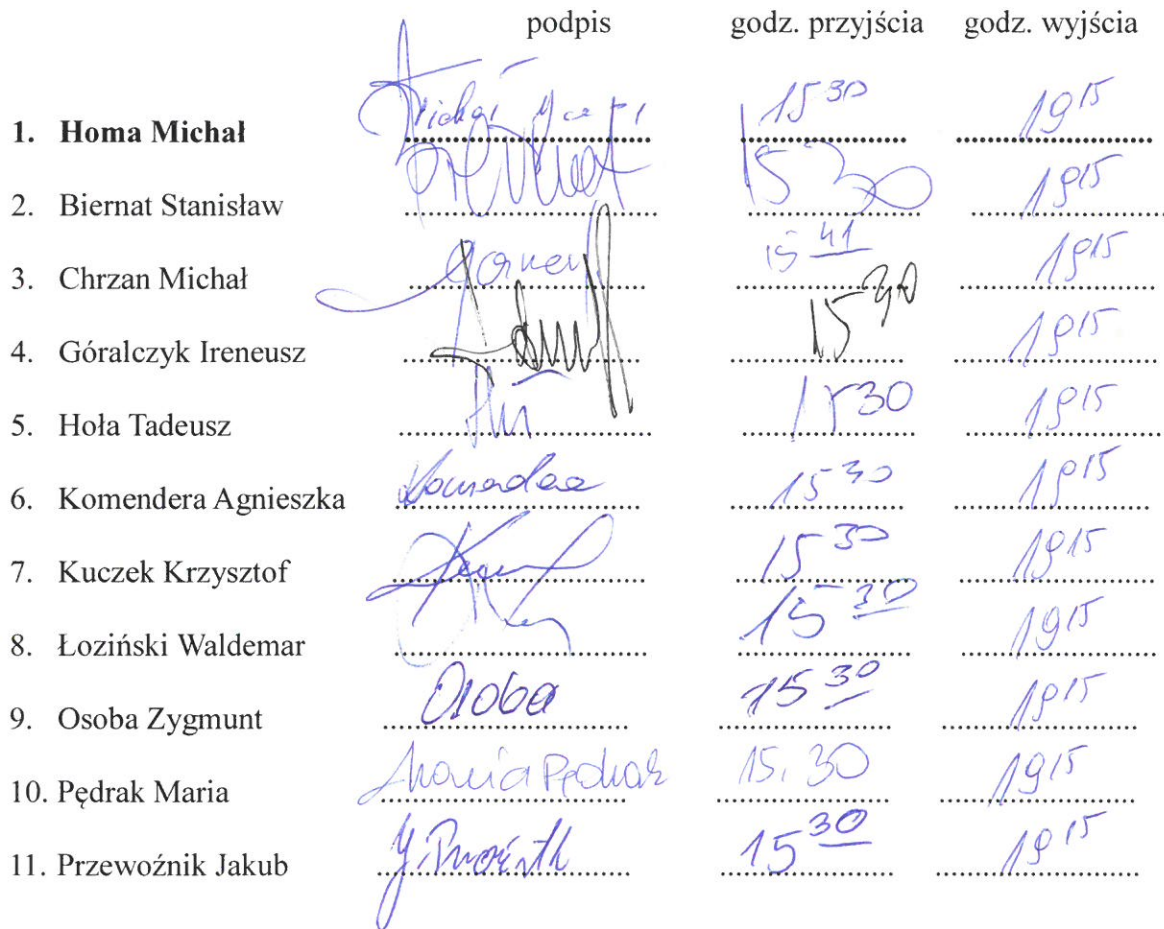 podpis godz. przyjścia godz. wyjścia
1. Homa Michał 15 30 19 15
2. Biernat Stanisław 15 30 19 15
3. Chrzan Michał 15 41 19 15
4. Góralczyk Ireneusz 15 30 19 15
5. Hoła Tadeusz 15 30 19 15
6. Komendera Agnieszka 15 30 19 15
7. Kuczek Krzysztof 15 30 19 15
8. Łoziński Waldemar 15 30 19 15
9. Osoba Zygmunt Osoba 15 30 19 15
10. Pędrak Maria Maria Pędrak 15.30 19 15
11. Przewoźnik Jakub 15 30 19 15